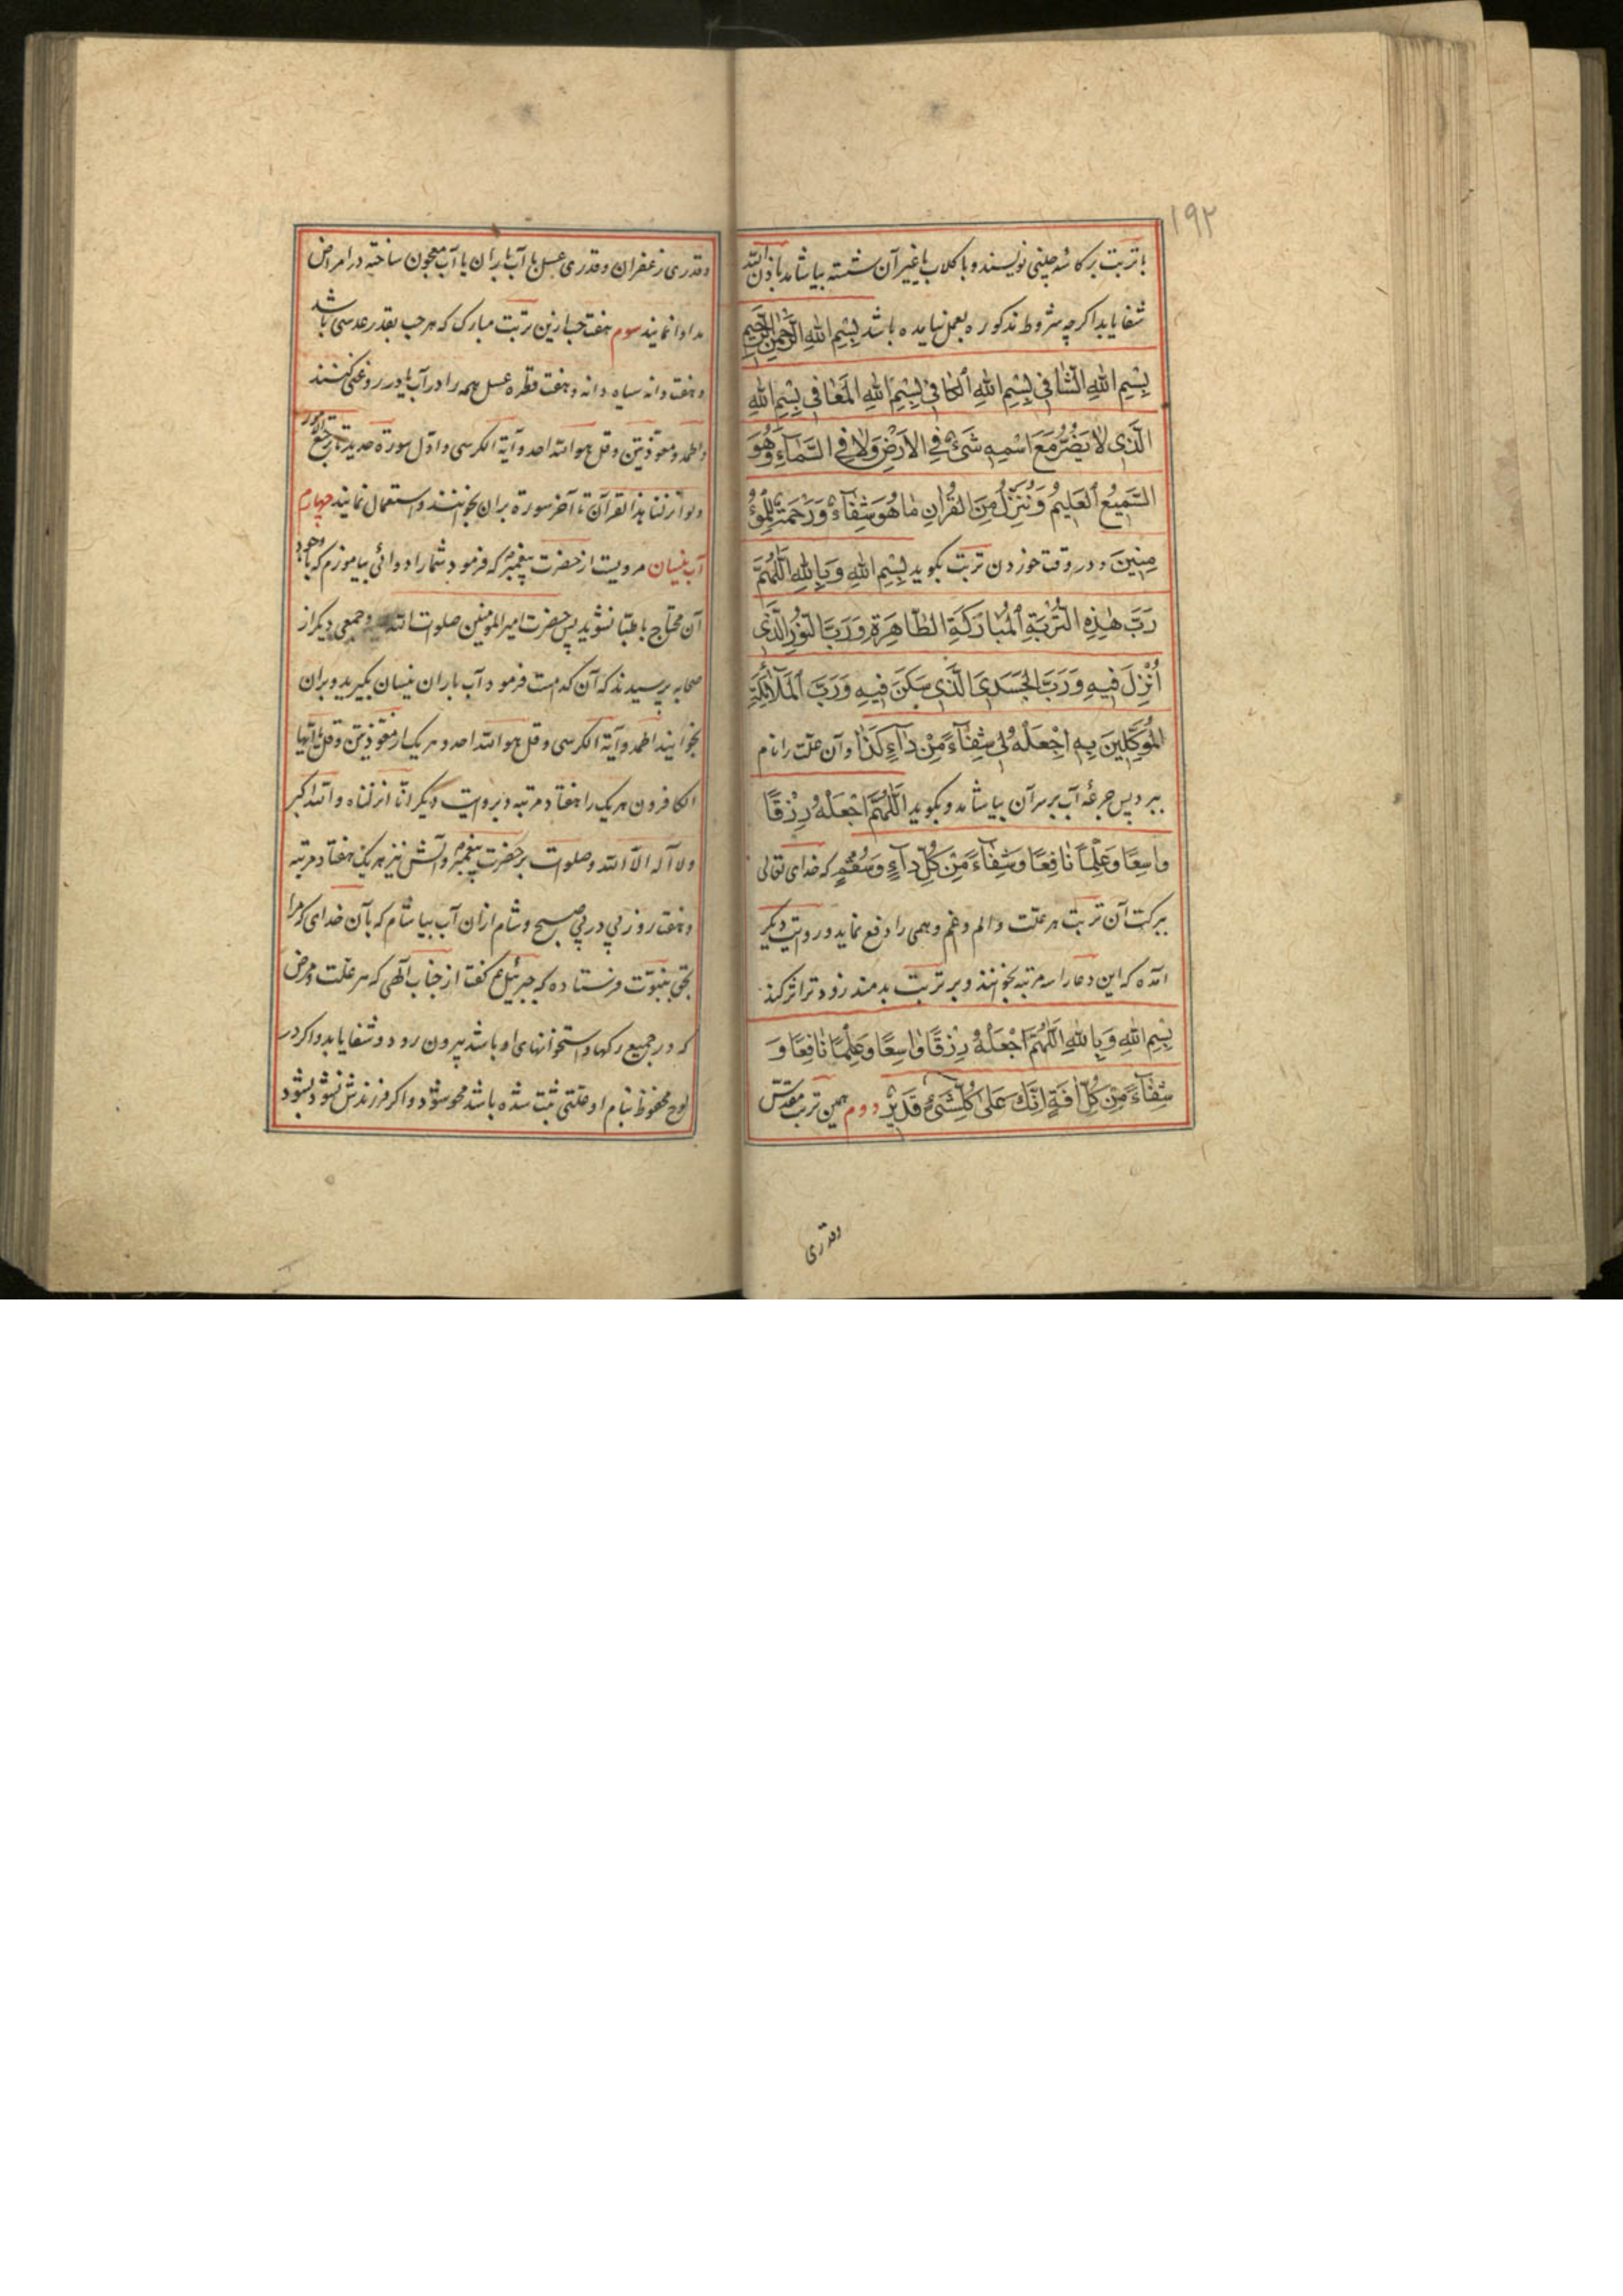 ۱۹۲
با تربت بر کاسه چینی نویسند و با کلاب یا غیر آن شسته بیاشامد باذن الله
شفا یابد اکرچه شروط مذکوره بعمل نیامده باشد بِسْمِ اللهِ الرَّحْمٰنِ الرَّحِیمِ
بِسْمِ اللهِ الشَّافِی بِسْمِ اللهِ الکَافِی بِسْمِ اللهِ المُعَافِی بِسْمِ اللهِ
الَّذِی لَا یَضُرُّ مَعَ اسْمِهِ شَیْءٌ فِی الاَرْضِ وَلَا فِی السَّمَآءِ وَهُوَ
السَّمِیعُ العَلِیمُ وَنُنَزِّلُ مِنَ القُرْاٰنِ مَا هُوَ شِفَآءٌ وَرَحْمَةٌ لِلْمُؤْ
مِنِینَ و در وقت خوردن تربت بکوید بِسْمِ اللهِ وَ بِاللهِ اَللّٰهُمَّ
رَبَّ هٰذِهِ التُّرْبَةِ الْمُبَارَکَةِ الطَّاهِرَةِ وَرَبَّ النُّورِ الَّذِی
اُنْزِلَ فِیهِ وَرَبَّ الجَسَدِ الَّذِی سَکَنَ فِیهِ وَرَبَّ الْمَلَآئِکَةِ
الْمُوَکَّلِینَ بِهِ اِجْعَلْهُ لِی شِفَآءً مِنْ دَآءِ کَذَا و آن علت را نام
ببرد پس جرعهٔ آب بر سر آن بیاشامد و بکوید اَللّٰهُمَّ اجْعَلْهُ رِزْقًا
وَاسِعًا وَعِلْمًا نَافِعًا وَشِفَآءً مِنْ کُلِّ دَآءٍ وَسُقْمٍ که خدای تعالی
ببرکت آن تربت هر علت و الم و غم و همی را دفع نماید و در روایت دیکر
آمده که این دعا را سه مرتبه بخوانند و بر تربت بدمند زودتر اثر کند
بِسْمِ اللهِ وَ بِاللهِ اَللّٰهُمَّ اجْعَلْهُ رِزْقًا وَاسِعًا وَعِلْمًا نَافِعًا وَ
شِفَآءً مِنْ کُلِّ اٰفَةٍ اِنَّکَ عَلٰی کُلِّشَیْءٍ قَدِیرٌ دوم همین تربت مقدس
وقدری
وقدری زعفران و قدری عسل با آب باران یا آب معجون ساخته در امراض
مداوا نمایند سوم هفت حب ازین تربت مبارک که هر حب بقدر عدسی باشد
و هفت دانه سیاه دانه و هفت قطره عسل همه را در آب یا در روغنی کنند
و الحمد و معوذتین و قل هو الله احد و آیة الکرسی و اول سورة حدید تا ترجع الامور
و لو انزلنا هذا القرآن تا آخر سورة بران بخوانند و استعمال نمایند چهارم
آب نیسان مرویست از حضرت پیغمبر که فرمود شما را دوائی بیاموزم که با وجود
آن محتاج باطبا نشوید پس حضرت امیر المومنین صلوات الله و جمعی دیکر از
صحابه پرسیدند که آن کدامست فرمود آب باران نیسان بکیرید و بران
بخوانید الحمد و آیة الکرسی و قل هو الله احد و هر یک از معوذتین و قل یا ایها
الکافرون هر یک را هفتاد مرتبه و بروایت دیکر انا انزلناه و الله اکبر
و لا آله الا الله و صلوات بر حضرت پیغمبر و آلش نیز هر یک هفتاد مرتبه
و هفت روز پی در پی صبح و شام ازان آب بیاشام که بآن خدای که مرا
بحق بنبوت فرستاده که جبرئیل ع گفت از جناب آلهی که هر علت و مرض
که در جمیع رکها و استخوانهای او باشد بیرون رود و شفا یابد و اکر در
لوح محفوظ بنام او علتی ثبت شده باشد محو شود و اکر فرزندش نشود بشود